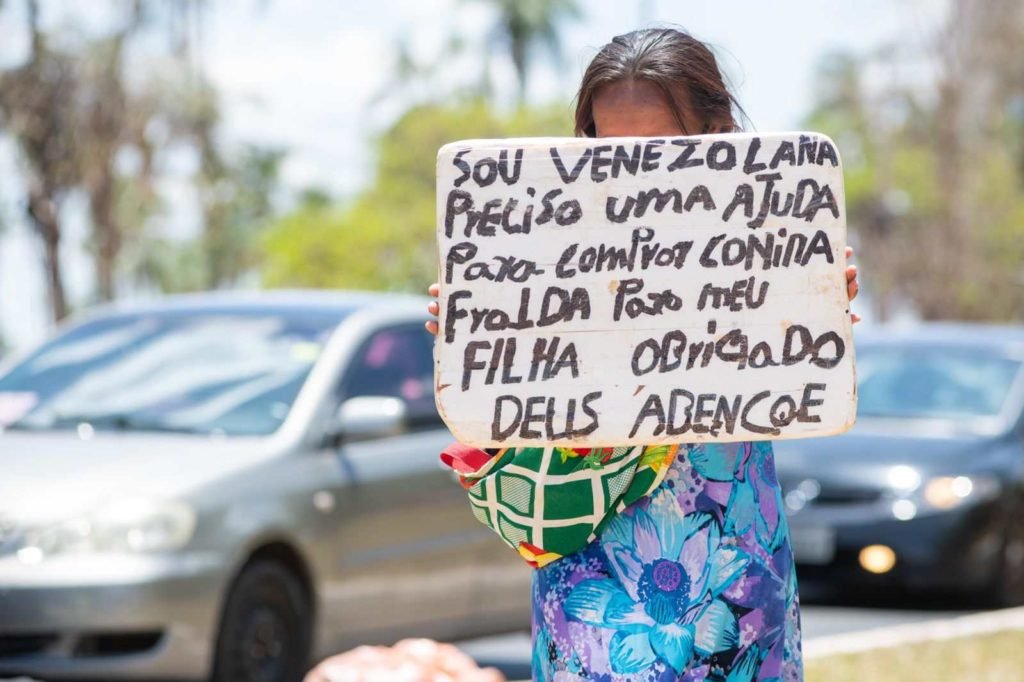 SOU VENEZOLANA
PRECISO UMA AJUDA
Para comprar CONINA
FralDA Para MEU
FILHA OBrigaDO
DEUS ABENCOE